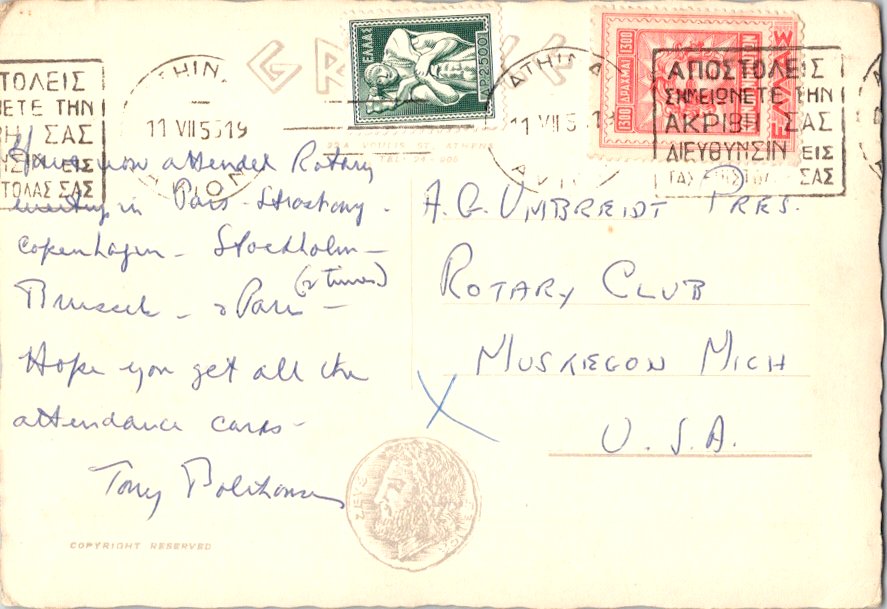 GREECE
ΕΛΛΑΣ
ΔΡ.2500
1300 ΔΡΑΧΜΑΙ 1300
ΕΛΛΑΣ
ΑΠΟΣΤΟΛΕΙΣ
ΣΗΜΕΙΩΝΕΤΕ ΤΗΝ
ΑΚΡΙΒΗ ΣΑΣ
ΔΙΕΥΘΥΝΣΙΝ ΕΙΣ
ΣΑΣ
ΤΟΛΕΙΣ
ΝΕΤΕ ΤΗΝ
ΣΑΣ
ΕΙΣ
ΤΟΛΑΣ ΣΑΣ
11 VII 5
19
11 VII 5
Have now attended Rotary
meeting in Paris - Strasbourg -
Copenhagen - Stockholm -
Brussels - & Paris (2 times) -
Hope you get all the
attendance cards -
Tony
A. G. UMBREIDT PRES.
ROTARY CLUB
MUSKEGON MICH
U.S.A.
COPYRIGHT RESERVED